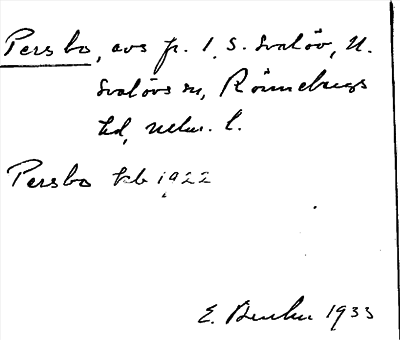 Persbo, avs fr. 1, S. Svalöv, N.
Svalövs sn, Rönnebergs
hd, Malm. l.
Persbo kb 1922
E. Benker 1933